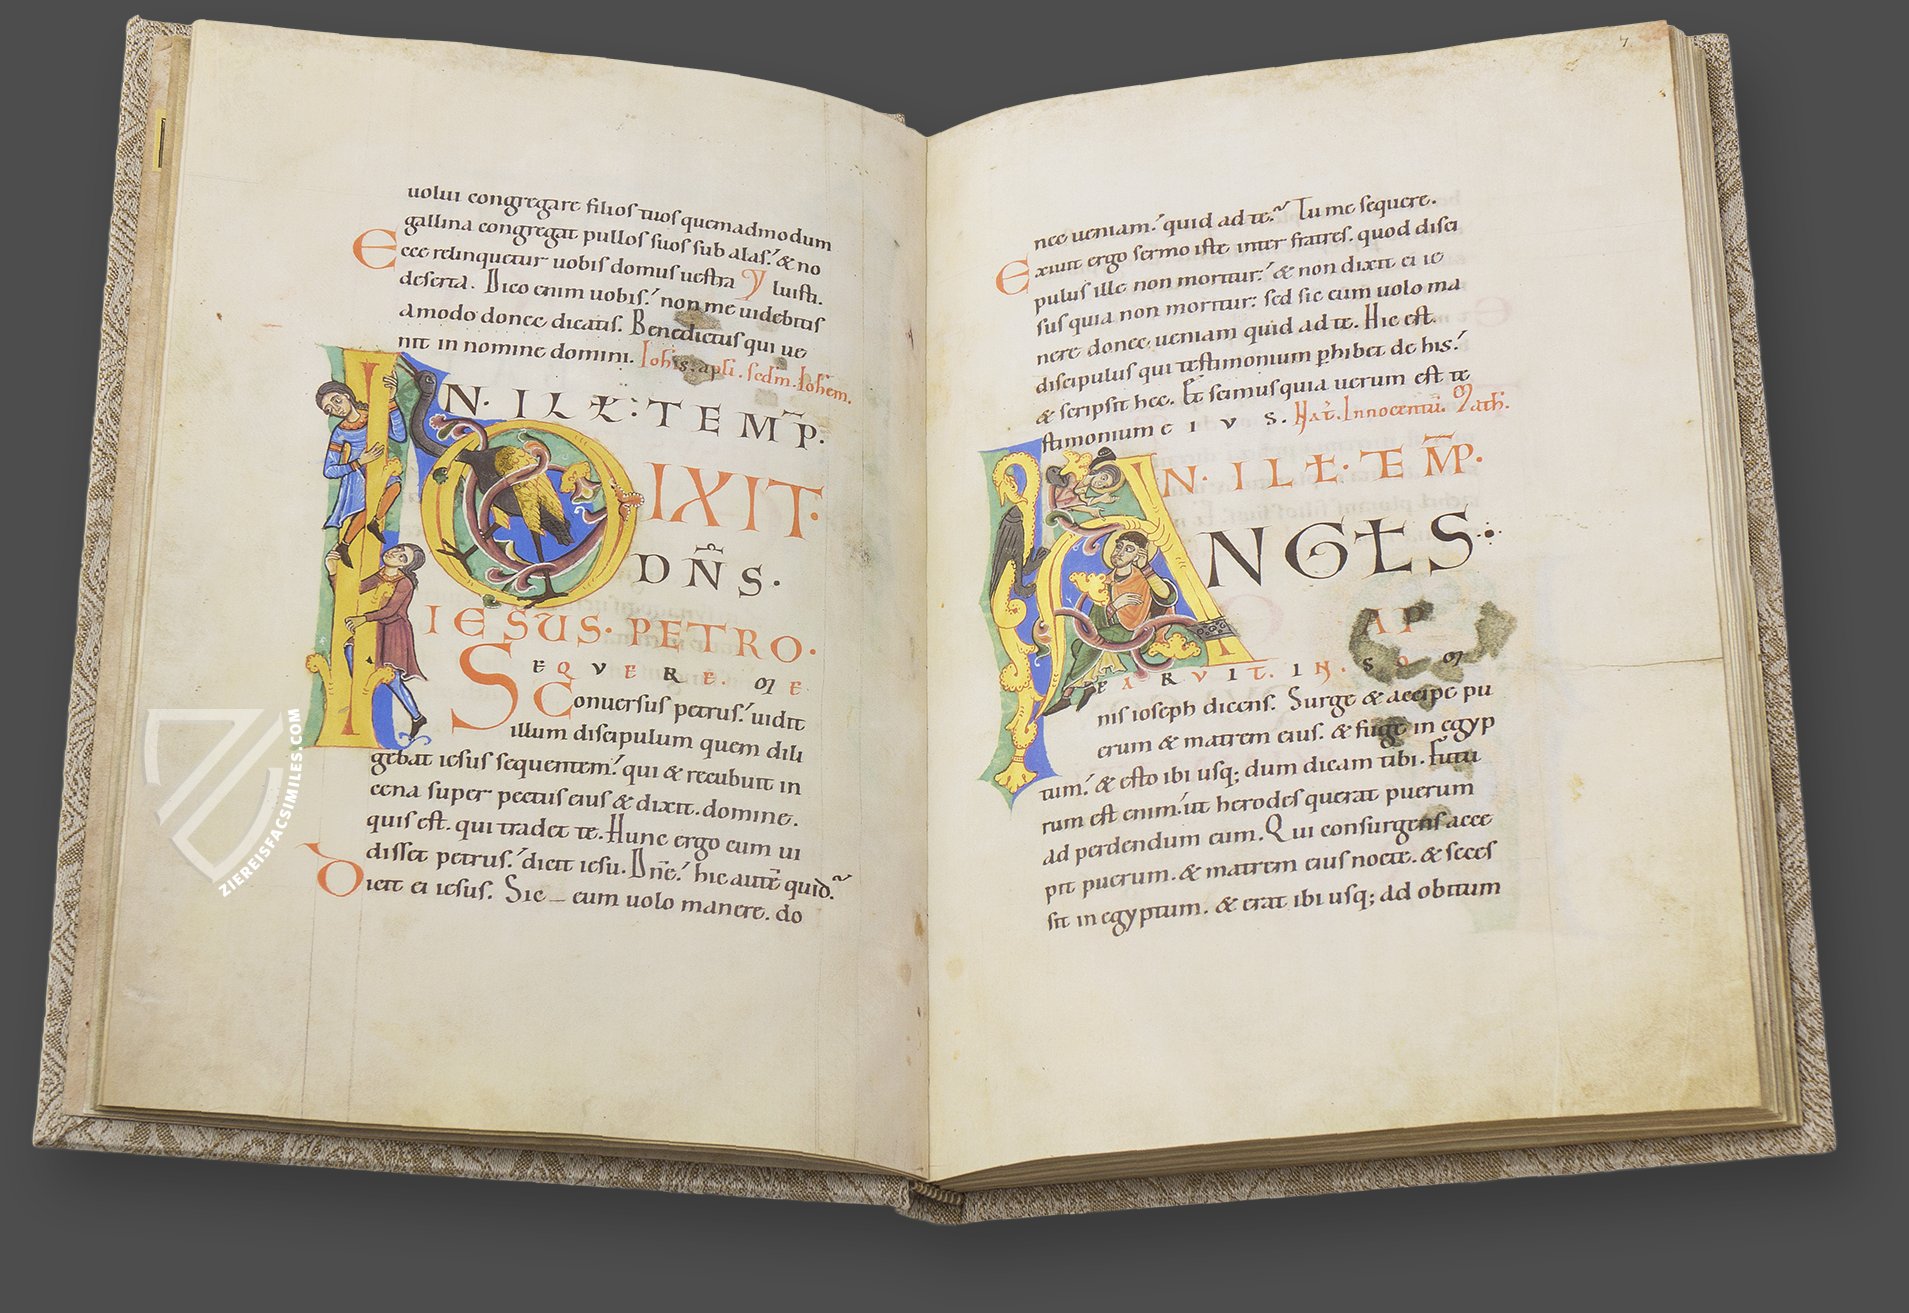 uolui congregare filios tuos quemadmodum
gallina congregat pullos suos sub alas.' & no
Ecce relinquetur uobis domus uestra luisti.
deserta. Dico enim uobis.' non me uidebitis
amodo donec dicatis. Benedictus qui ue
nit in nomine domini. Iohis. apli. sedm. Iohem.
IN. ILL̵: TEMP̄.
DIXIT.
DN̄S.
IESUS. PETRO.
SEQVERE. ME
Conuersus petrus.' uidit
illum discipulum quem dili
gebat iesus sequentem.' qui & recubuit in
cena super pectus eius & dixit. domine.
quis est. qui tradet te. Hunc ergo cum ui
disset petrus.' dicit iesu. Dn̄e.' hic autē quid.
Dicit ei iesus. Sic _ eum uolo manere. do
ZIEREISFACSIMILES.COM
7
nec ueniam.' quid ad te. Tu me sequere.
Exiuit ergo sermo iste inter fratres. quod disci
pulus ille non moritur.' & non dixit ei ie
sus quia non moritur: sed sic eum uolo ma
nere donec ueniam quid ad te. Hic est
discipulus qui testimonium phibet de his.'
& scripsit hec. Et scimus quia uerum est te
stimonium eIVS. Nat. Innocentū. Math.
IN. ILL̵. TEM̄P.
ANGLS.
AP
PARVIT. IN. SO M
nis ioseph dicens. Surge & accipe pu
erum & matrem eius. & fuge in egyp
tum.' & esto ibi usq; dum dicam tibi. Futu
rum est enim.' ut herodes querat puerum
ad perdendum eum. Qui consurgens acce
pit puerum. & matrem eius nocte. & seces
sit in egyptum. & erat ibi usq; ad obitum